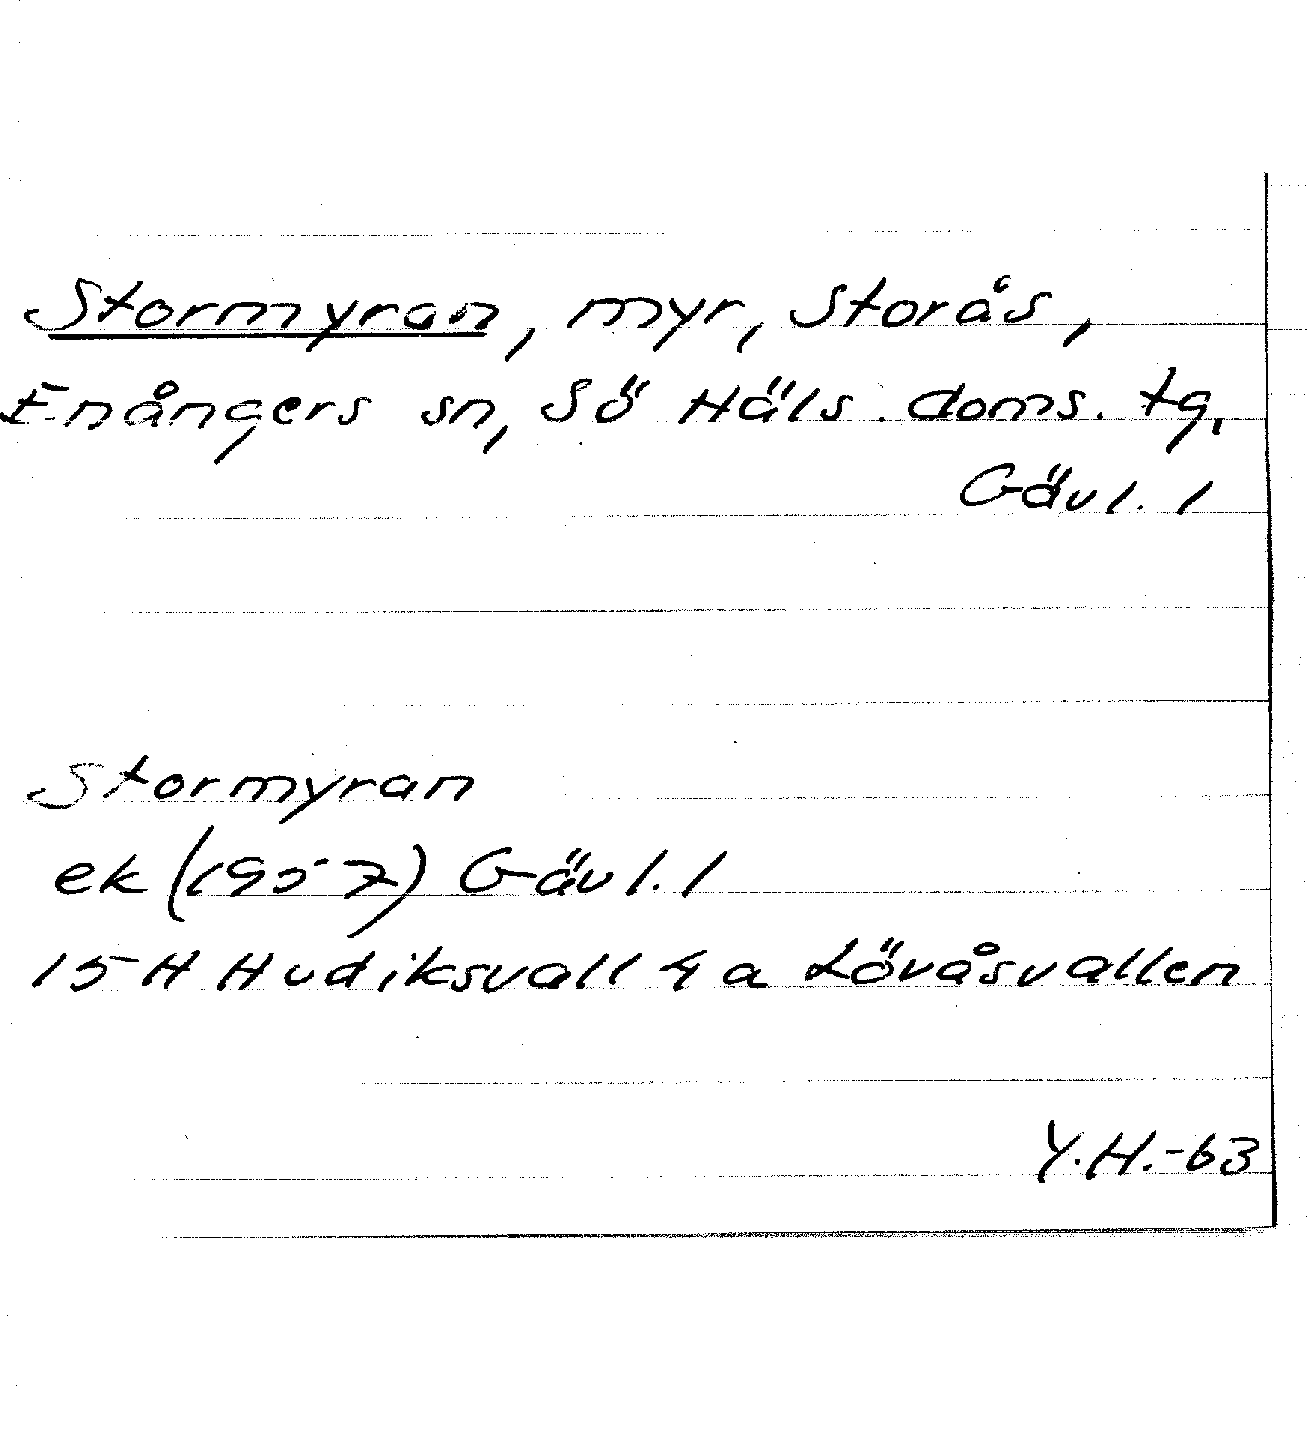 Stormyran, myr, Storås,
Enångers sn, Sö Häls. doms. tg,
Gävl. l
Stormyran
ek (1957) Gävl. l
15 H Hudiksvall 4 a Lövåsvallen
Y.H.-63